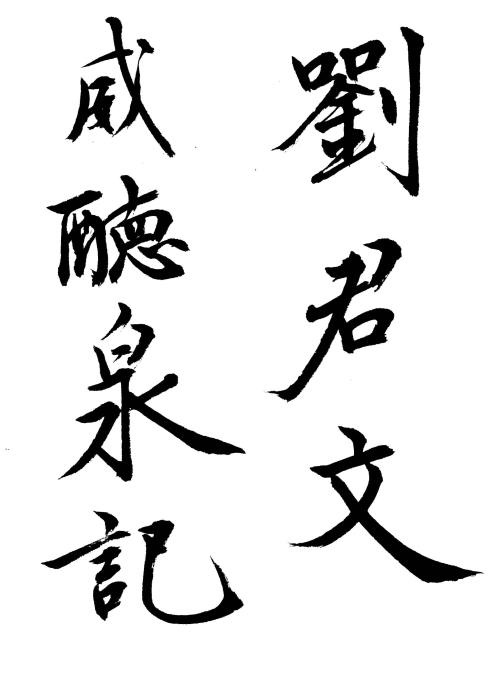 劉君文
威聽泉記